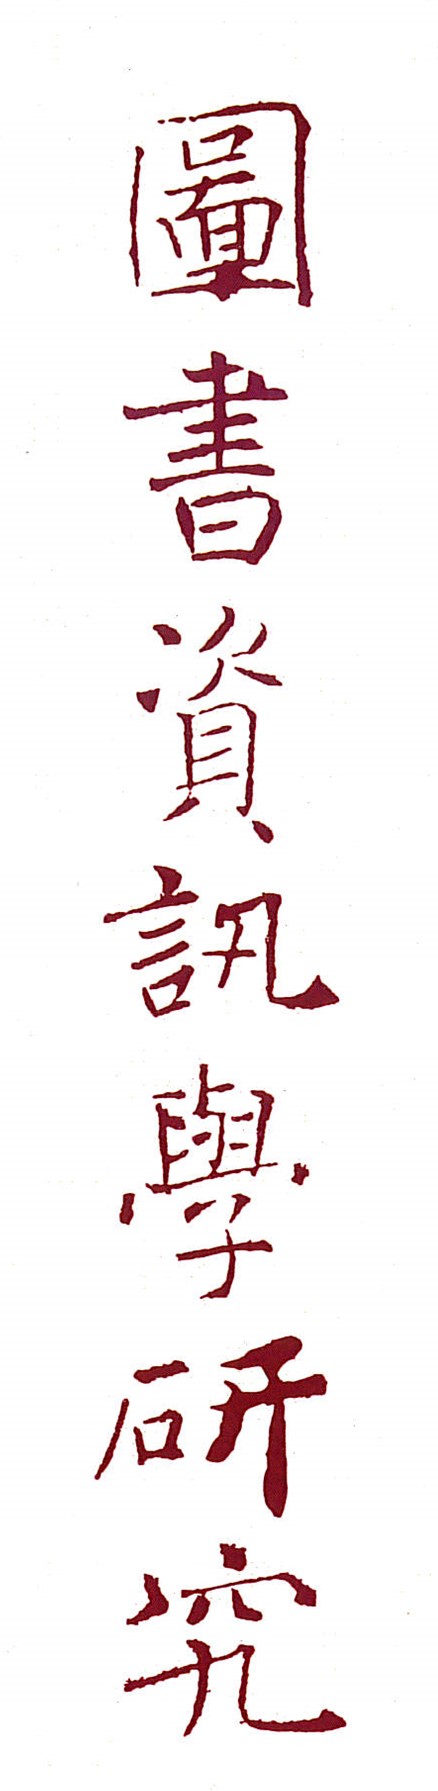 圖書資訊學研究